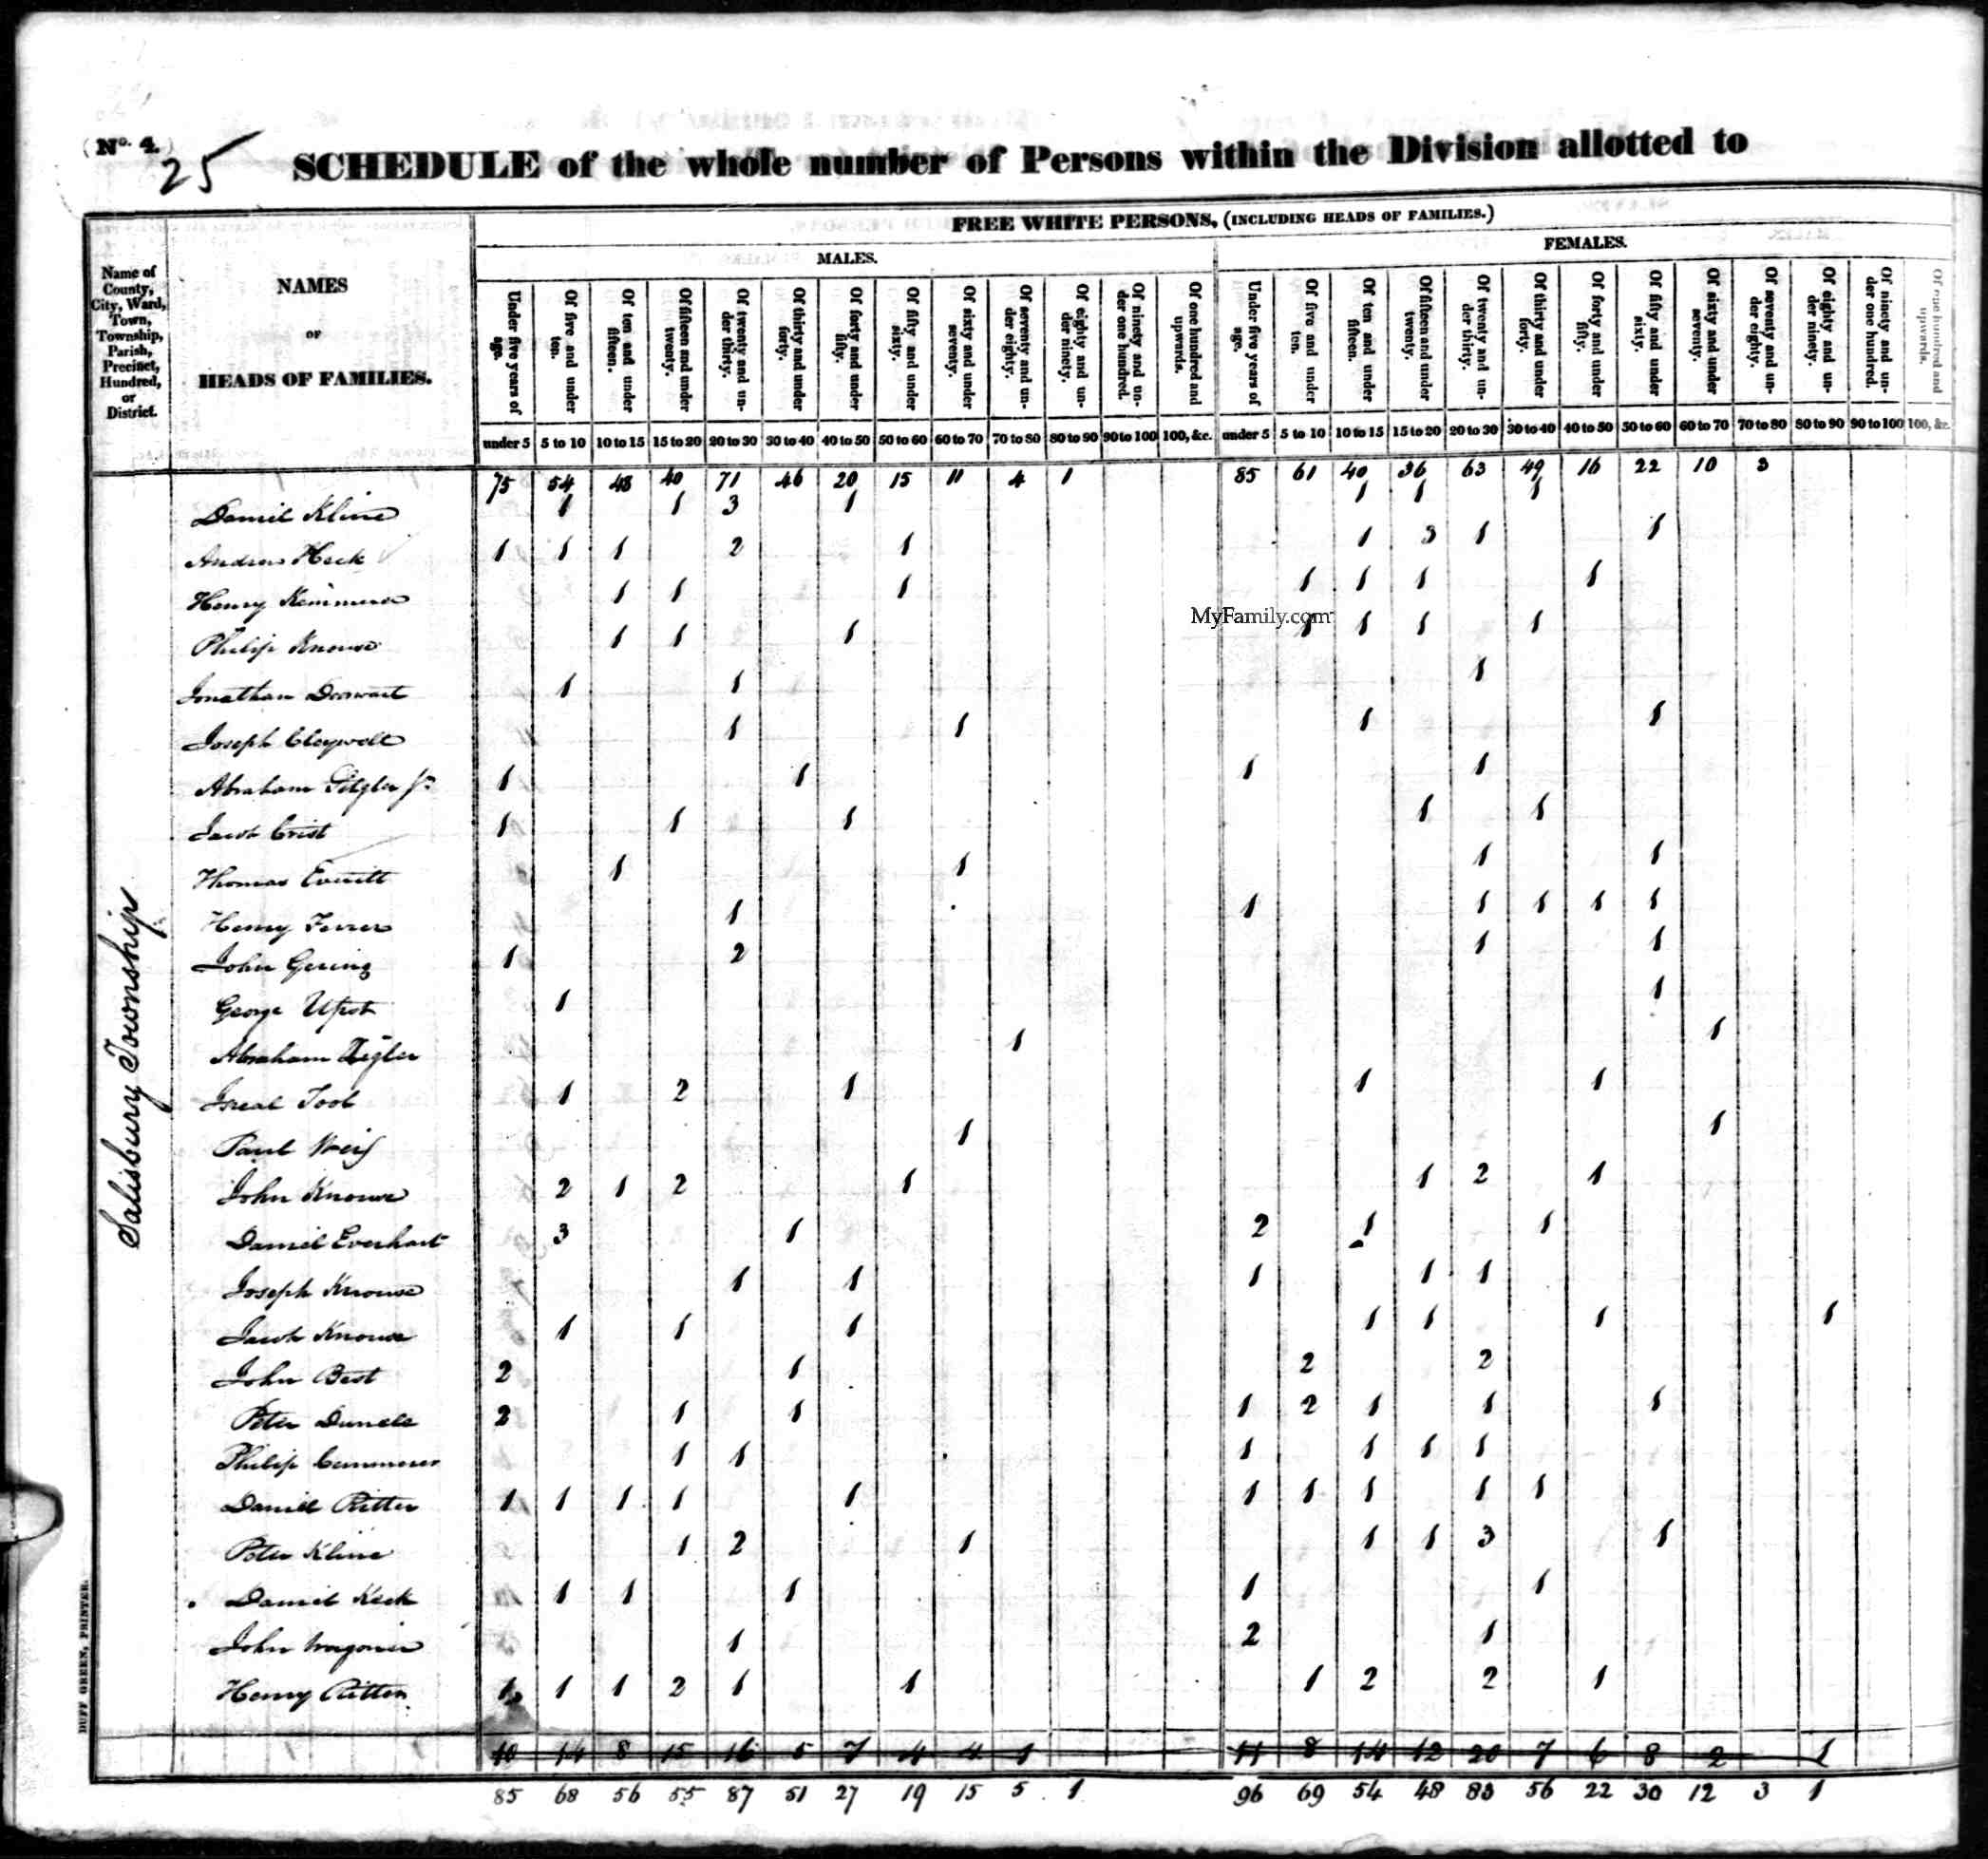 No. 4.
25
SCHEDULE of the whole number of Persons within the Division allotted to
FREE WHITE PERSONS, (INCLUDING HEADS OF FAMILIES.)
MALES. FEMALES.
Name of County, City, Ward, Town, Township, Parish, Precinct, Hundred, or District.
NAMES
OF
HEADS OF FAMILIES.
Under five years of age. Of five and under ten. Of ten and under fifteen. Of fifteen and under twenty. Of twenty and under thirty. Of thirty and under forty. Of forty and under fifty. Of fifty and under sixty. Of sixty and under seventy. Of seventy and under eighty. Of eighty and under ninety. Of ninety and under one hundred. Of one hundred and upwards. Under five years of age. Of five and under ten. Of ten and under fifteen. Of fifteen and under twenty. Of twenty and under thirty. Of thirty and under forty. Of forty and under fifty. Of fifty and under sixty. Of sixty and under seventy. Of seventy and under eighty. Of eighty and under ninety. Of ninety and under one hundred. Of one hundred and upwards.
under 5 5 to 10 10 to 15 15 to 20 20 to 30 30 to 40 40 to 50 50 to 60 60 to 70 70 to 80 80 to 90 90 to 100 100, &c. under 5 5 to 10 10 to 15 15 to 20 20 to 30 30 to 40 40 to 50 50 to 60 60 to 70 70 to 80 80 to 90 90 to 100 100, &c.
75 54 48 40 71 46 20 15 11 4 1 85 61 40 36 63 49 16 22 10 3
Daniel Kline 1 1 3 1 1 1 1
Andrew Heck 1 1 1 2 1 1 3 1 1
Henry Kemmerer 1 1 1 1 1 1 1
MyFamily.com
Philip Knouse 1 1 1 1 1 1 1
Jonathan 1 1 1
Joseph Cleywell 1 1 1 1
Abraham 1 1 1 1
Jacob Crist 1 1 1 1 1
Thomas Everitt 1 1 1 1
Henry Ferrer 1 1 1 1 1 1
John Gering 1 2 1 1
George 1 1
Abraham Zigler 1 1
Isreal Toob 1 2 1 1 1
Paul 1 1
John Knouse 2 1 2 1 1 2 1
Daniel Everhart 3 1 2 1 1
Joseph Knouse 1 1 1 1 1
Jacob Knouse 1 1 1 1 1 1 1
John Best 2 1 2 2
Peter 2 1 1 1 2 1 1 1
Philip 1 1 1 1 1 1
Daniel Ritter 1 1 1 1 1 1 1 1 1 1
Peter Kline 1 2 1 1 1 3 1
Daniel Keck 1 1 1 1 1
John Wagoner 1 2 1
Henry Ritter 1 1 1 2 1 1 1 2 2 1
Salisbury Township
10 14 8 15 16 5 7 4 4 1 11 8 14 12 20 7 6 8 2 1
85 68 56 55 87 51 27 19 15 5 1 96 69 54 48 83 56 22 30 12 3 1
DUFF GREEN, PRINTER.